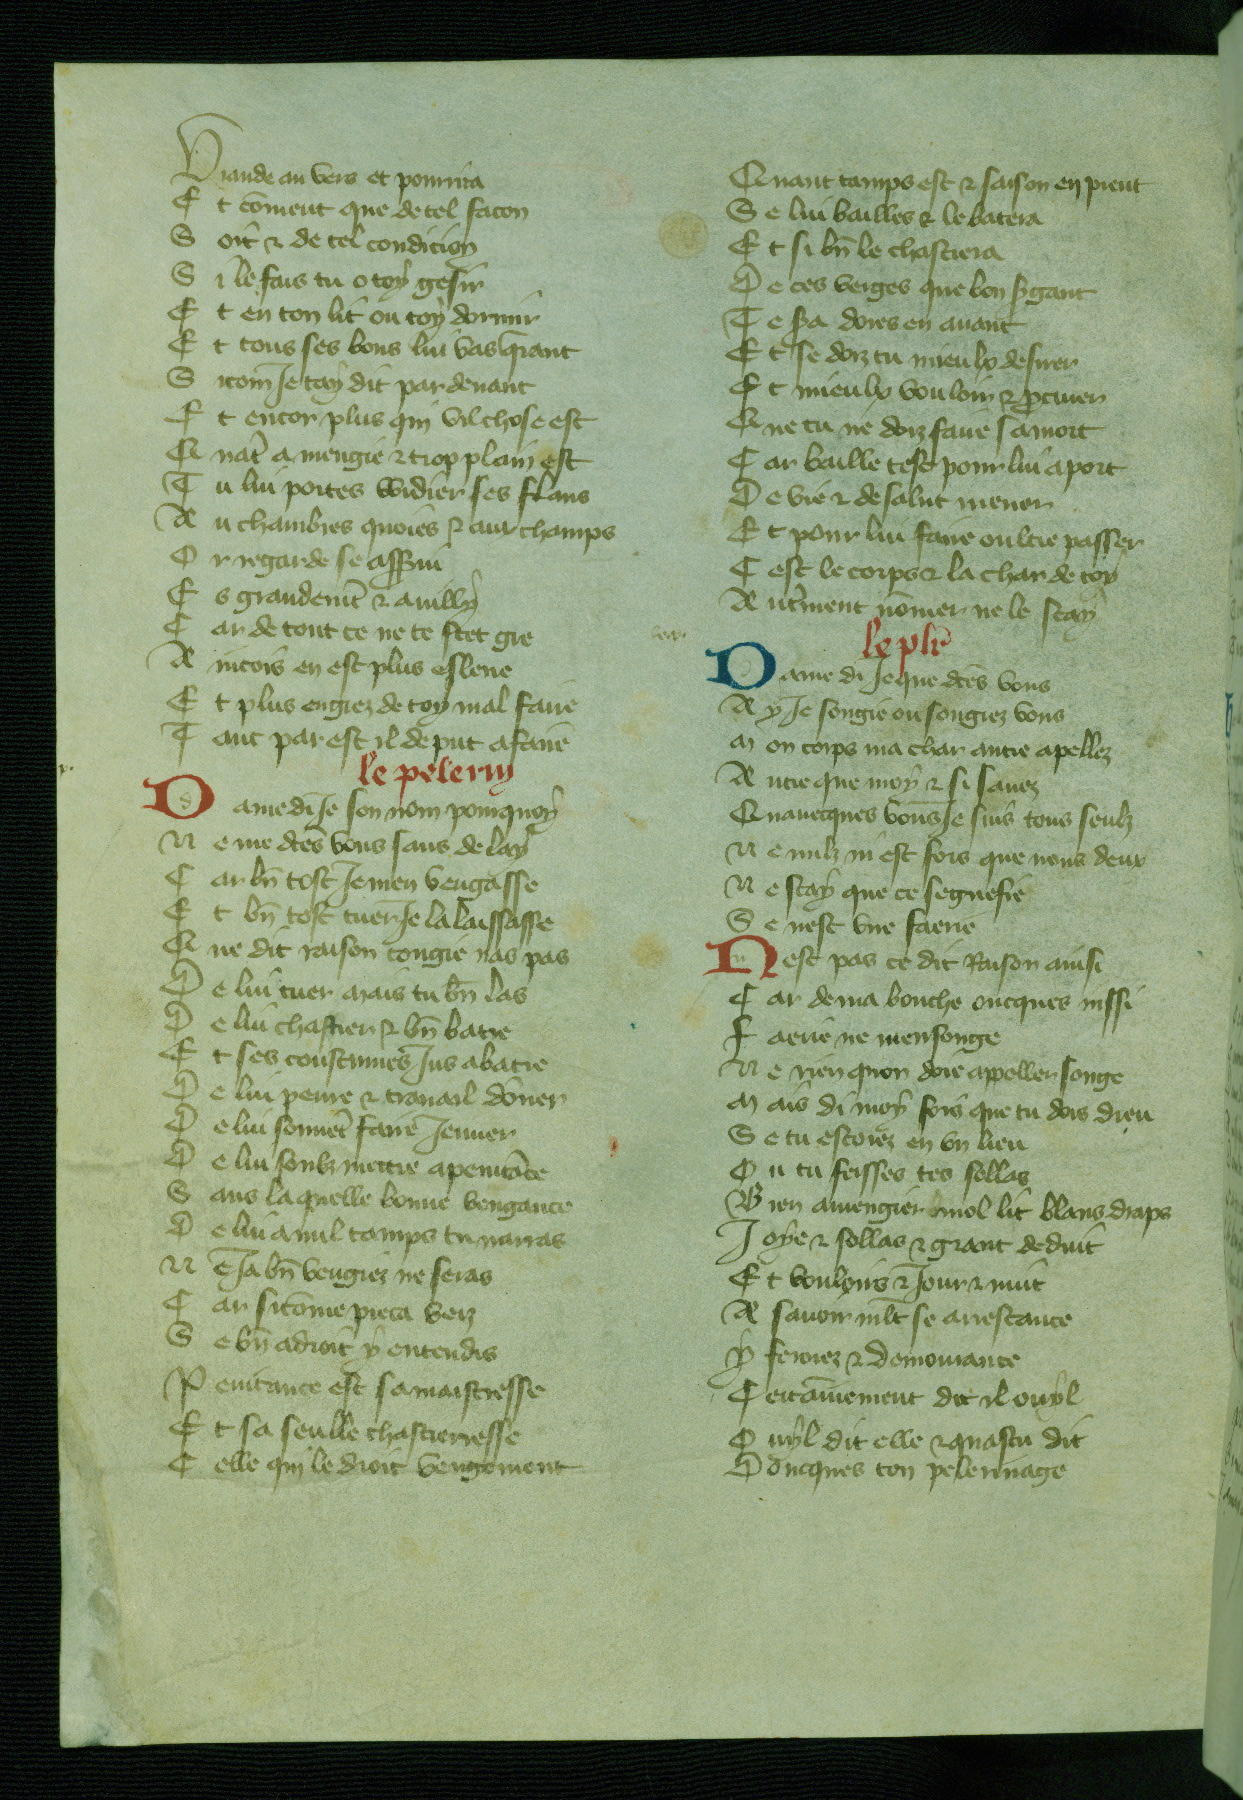 Viande au vers et pourrita
Et cōment que de tel facon
Soit & de tel condicion
Si le fais tu o toy gesir
Et en ton lit ou toy dormir
Et tous ses bons lui vas q̄rant
Sicom Je tay dit par deuant
Et encor plus qui vil chose est
Quāt a mengie & trop plain est
Tu lui portes widier ses flans
Au chambres quoies & aux champs
Or regarde se asserui
Es grandemt̄ & auilly
Car de tout ce ne te scet gre
Aincois en est plus esleue
Et plus engrez de toy mal faire
Tant par est il de put afaire
le pelerin
Dame di Je son nom pourquoy
Ne me dtēs vous sans delay
Car bn̄ tost Je men vengasse
Et bn̄ tost tuer Je la laissasse
Que dit raison congie nas pas
De lui tuer Mais tu bn̄ las
De lui chastier & bn̄ batre
Et ses coustumes Jus abatre
De lui peine & trauail dōner
De lui souuet̄ faire Jeuner
De lui soubz mettre a penitāce
Sans laquelle bonne vengance
De lui a nul tamps tu nauras
Ne Ja bn̄ vengiez ne seras
Car sicōme pieca veiz
Se bn̄ adroit y entendis
Penitance est sa maistresse
Et sa seulle chastierresse
Celle qui le droit vengement
Quant tamps est & saison en prent
Se lui bailles & le batera
Et si bn̄ le chastiera
De ces verges que bon s̄gant
Te s̄ra dores en auant
Et se doiz tu mieulx desirer
Et mieulx vouloir & ꝓcurer
Que tu ne doiz faire sa mort
Car baille test pour lui a port
De vie & de salut mener
Et pour lui faire oultre passer
Cest le corps & la char de toy
Aut̄ment nōmer ne le scay
le plr̄
Dame di Je que dtēs vous
Ay Je songie ou songiez vous
Mon corps ma char autre apellez
Autre que moy & si sauez
Quauecques vous Je suis tous seulz
Ne nulz ni est fors que nous deux
Ne scay que ce segnefie
Se nest vne faerie
Nest pas ce dit Raison ainsi
Car de ma bouche oncques nissi
Faerie ne mensonge
Ne rien quon doie appeller songe
Mais di moy fois que tu dois dieu
Se tu estoiez en vn lieu
Ou tu feisses tes sollas
Bien a mengier mol lit blans draps
Joye & sollas & grant deduit
Et vouloirs & Jour & nuit
A sauoir mlt̄ se arrestance
y feroiez & demourance
Certainement dit il ouyl
Ouyl dit elle & quastu dit
Doncques ton pelerinage